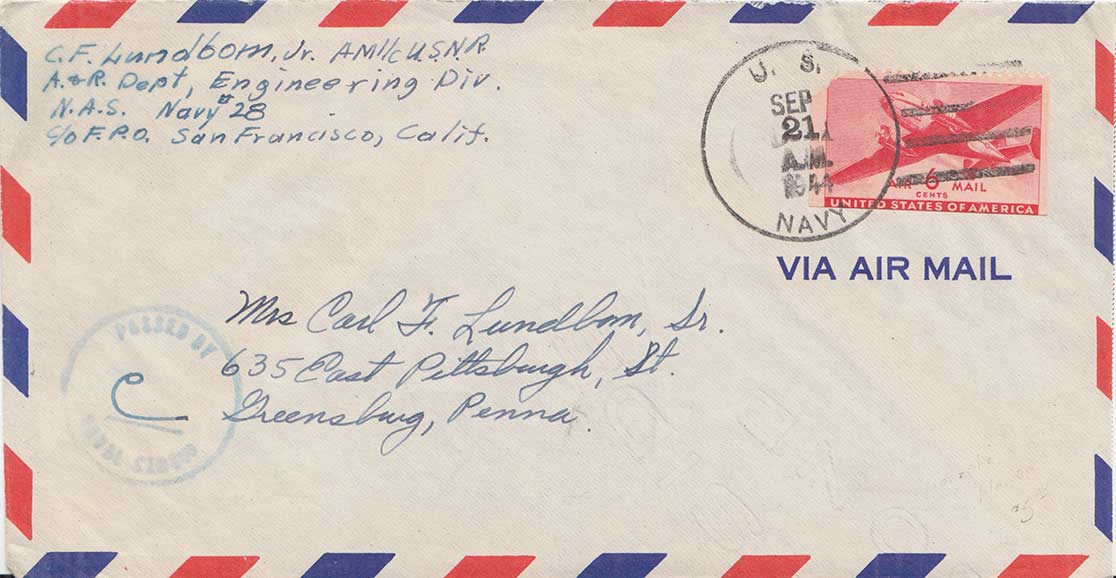 C.F. Lundbom, Jr. AM1/c U.S.N.R.
A.&R. Dept, Engineering Div.
N.A.S. Navy #28
c/o F.P.O. San Francisco, Calif.
U. S.
SEP
21
A.M.
1944
NAVY
AIR 6 MAIL
CENTS
UNITED STATES OF AMERICA
VIA AIR MAIL
Mrs Carl F. Lundbom, Sr.
635 East Pittsburgh, St.
Greensburg, Penna.
PASSED BY